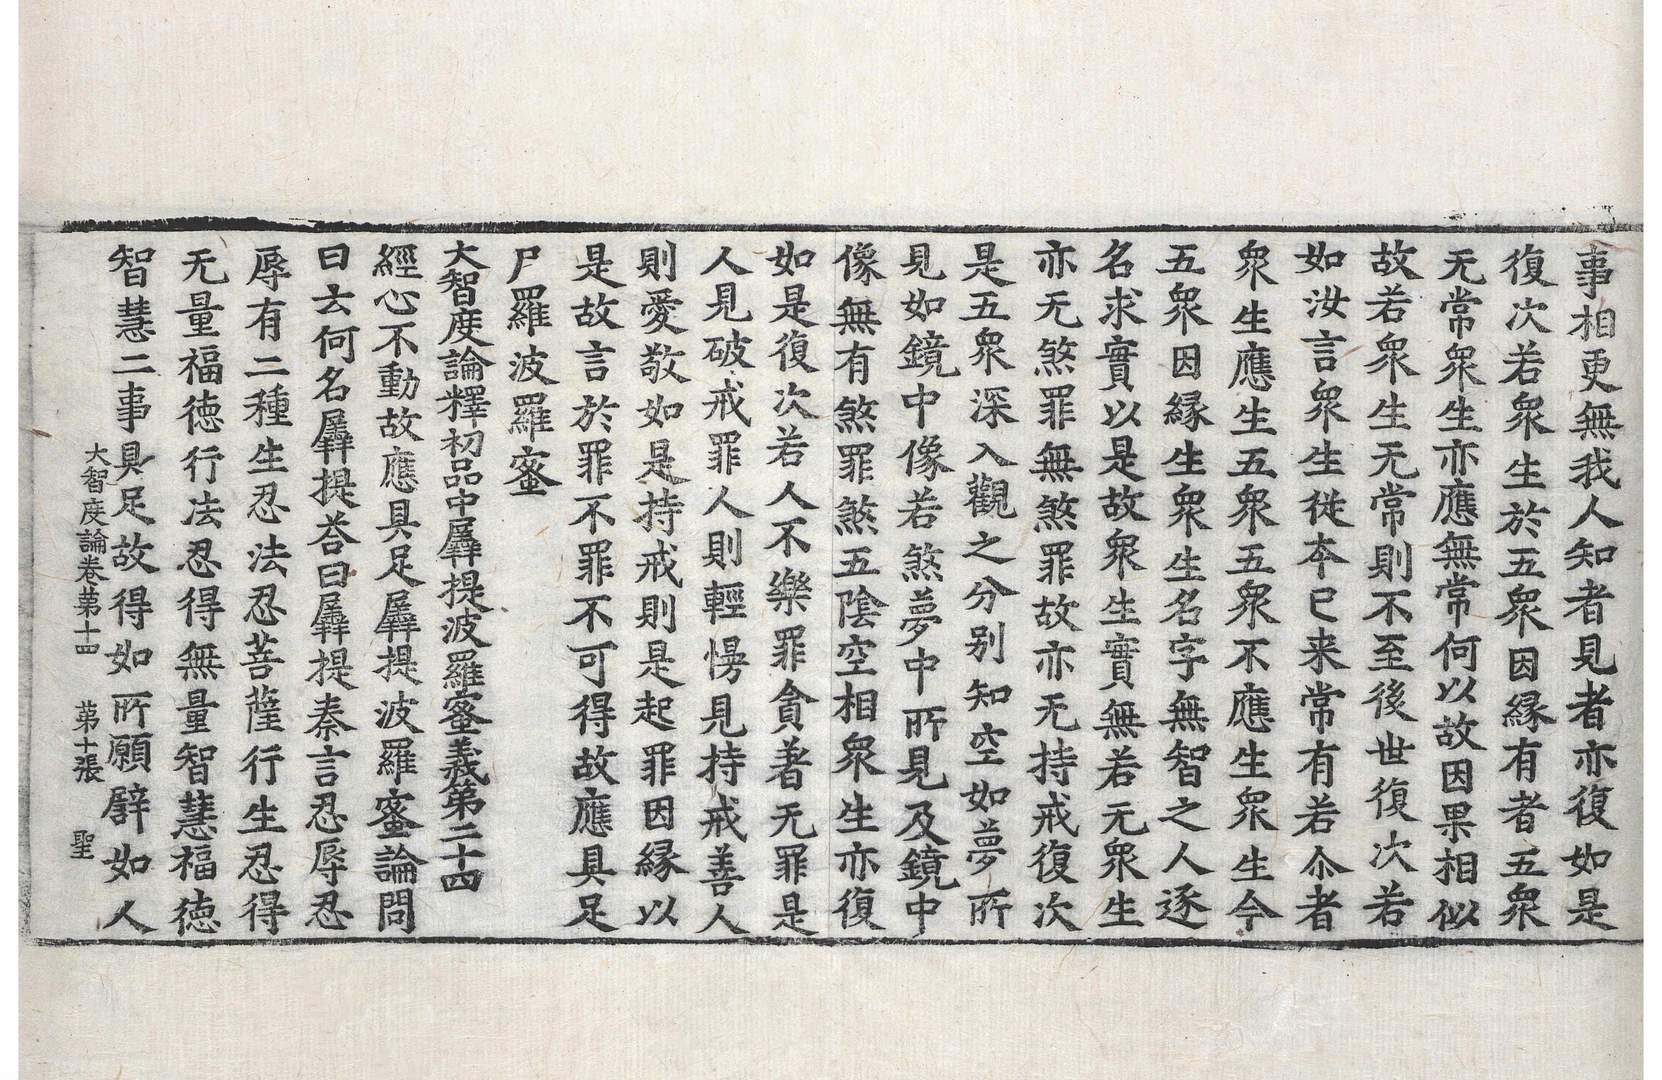 事相更無我人知者見者亦復如是
復次若衆生於五衆因縁有者五衆
无常衆生亦應無常何以故因果相似
故若衆生无常則不至後世復次若
如汝言衆生從本已来常有若尒者
衆生應生五衆五衆不應生衆生今
五衆因縁生衆生名字無智之人逐
名求實以是故衆生實無若无衆生
亦无煞罪無煞罪故亦无持戒復次
是五衆深入觀之分别知空如夢所
見如鏡中像若煞夢中所見及鏡中
像無有煞罪煞五陰空相衆生亦復
如是復次若人不樂罪貪著无罪是
人見破戒罪人則輕慢見持戒善人
則愛敬如是持戒則是起罪因縁以
是故言於罪不罪不可得故應具足
尸羅波羅蜜
大智度論釋初品中羼提波羅蜜義第二十四
經心不動故應具足羼提波羅蜜論問
曰云何名羼提荅曰羼提秦言忍辱忍
辱有二種生忍法忍菩薩行生忍得
无量福徳行法忍得無量智慧福徳
智慧二事具足故得如所願譬如人
大智度論卷苐十四 苐十張 聖